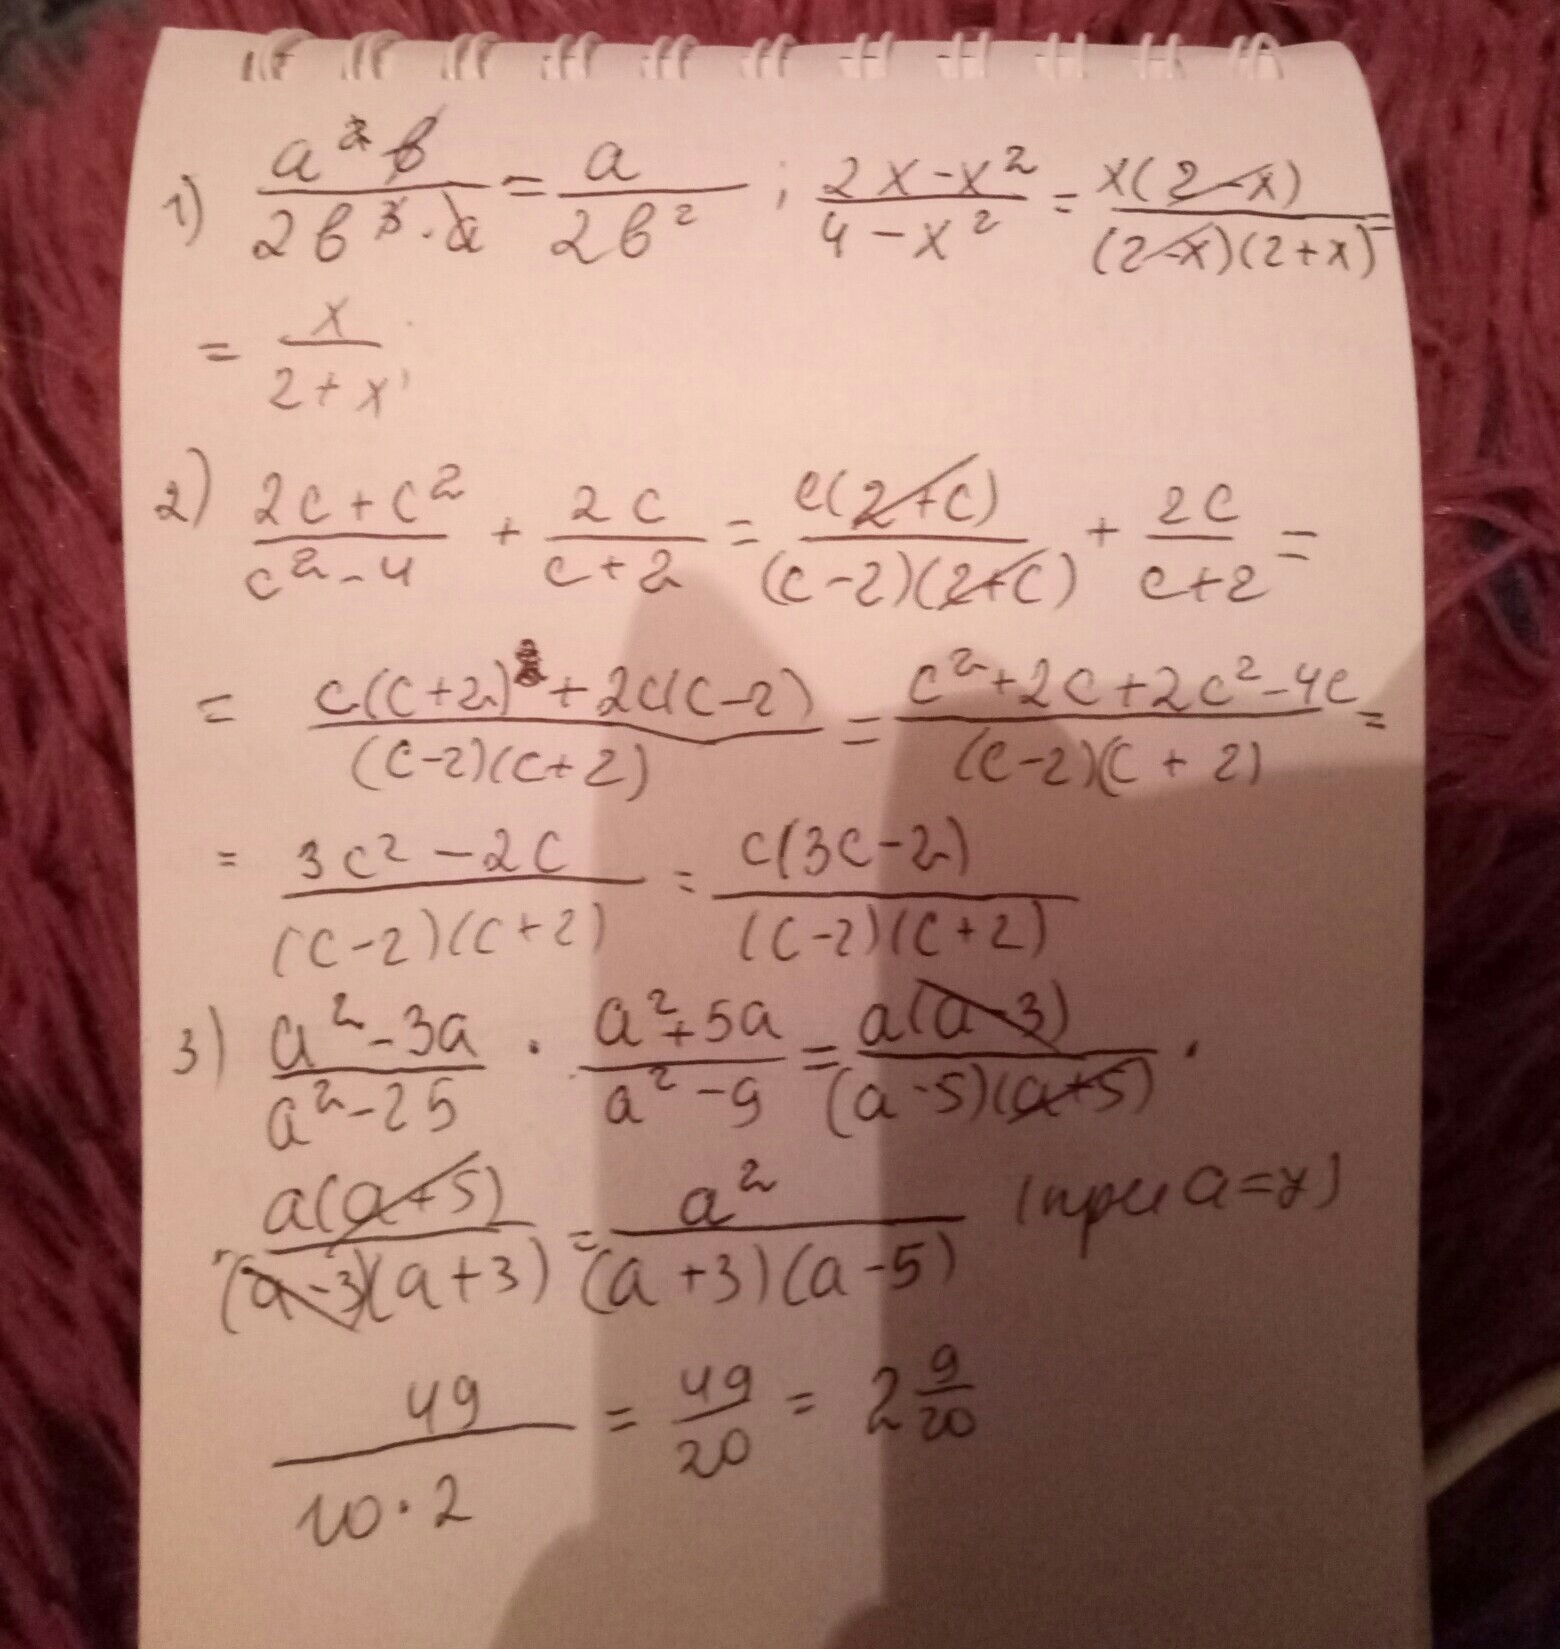 1) a²b / 2b³·a = a / 2b² ; 2x-x² / 4-x² = x(2-x) / (2-x)(2+x) =
= x / 2+x ;
2) 2c+c² / c²-4 + 2c / c+2 = c(2+c) / (c-2)(2+c) + 2c / c+2 =
= c(c+2)+2c(c-2) / (c-2)(c+2) = c²+2c+2c²-4c / (c-2)(c+2) =
= 3c²-2c / (c-2)(c+2) = c(3c-2) / (c-2)(c+2)
3) a²-3a / a²-25 · a²+5a / a²-9 = a(a-3) / (a-5)(a+5) ·
· a(a+5) / (a-3)(a+3) = a² / (a+3)(a-5) (при a=7)
49 / 10·2 = 49 / 20 = 2 9/20